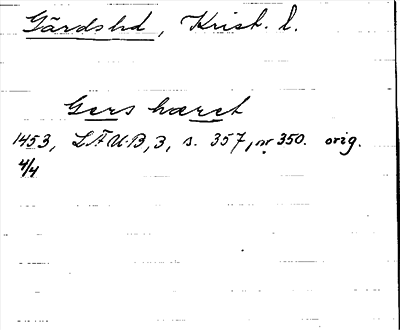 Gärdshd, Krist. l.
Gers hæret
1453, LÄUB, 3, s. 357, nr 350. orig.
4/4